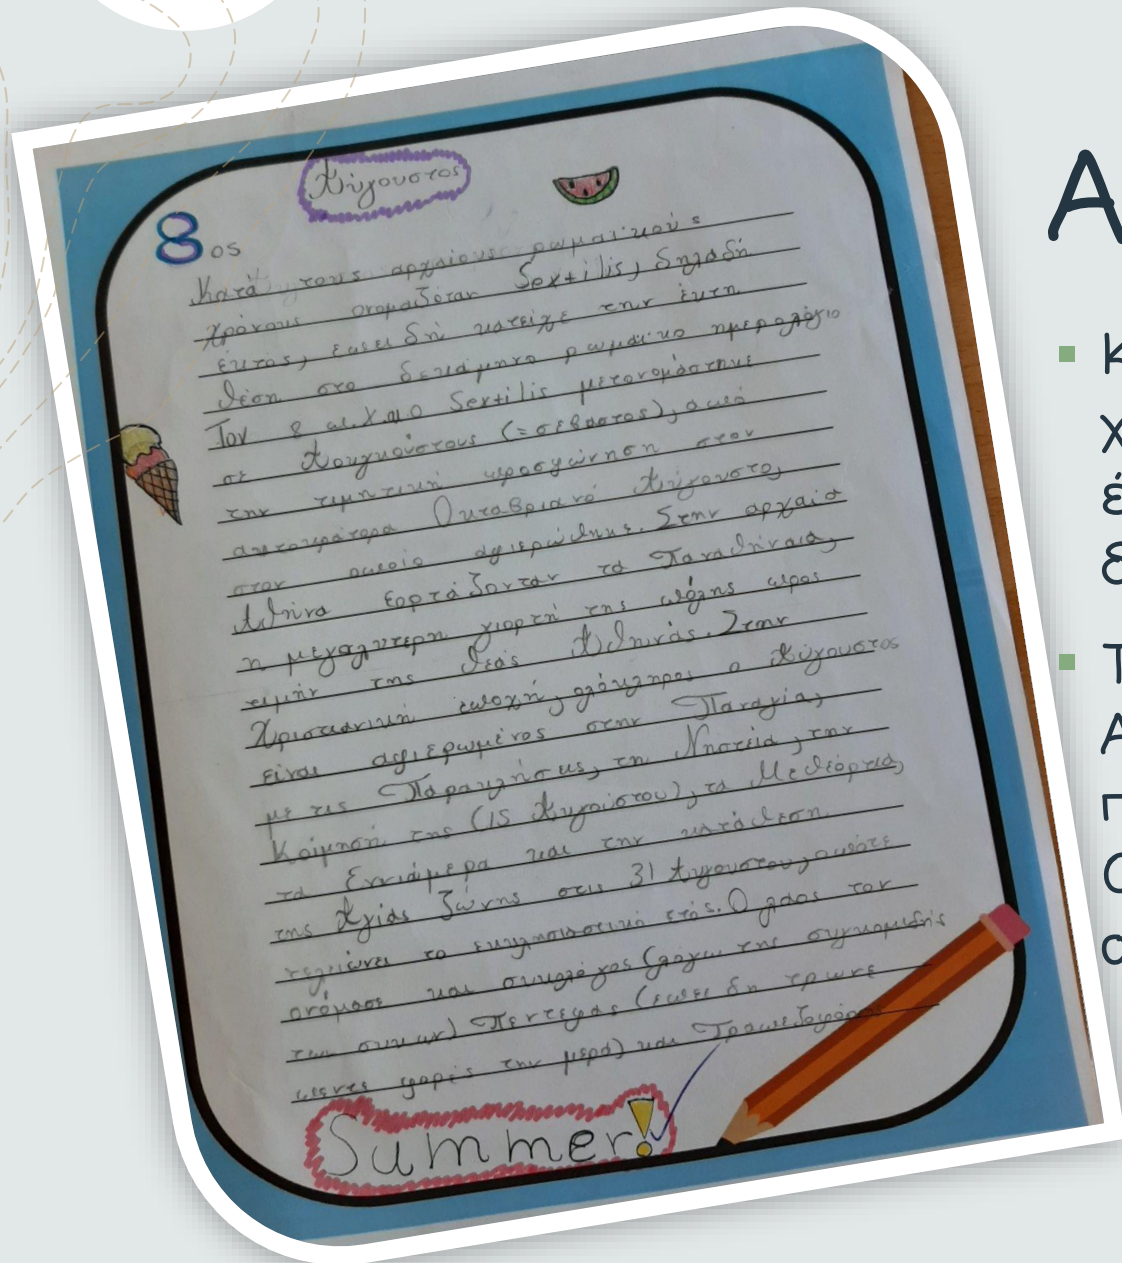 Αύγουστος
8ος
Κατά τους αρχαίους ρωμαϊκούς
χρόνους ονομαζόταν Sextilis, δηλαδή
έκτος, επειδή κατείχε την έκτη
θέση στο δεκάμηνο ρωμαϊκο ημερολόγιο
Τον 8 π.Χ. μ ο Sextilis μετονομάστηκε
σε Αουγκούστους (=σέβαστος), από
την τιμητική προσφώνηση στον
αυτοκράτορα Οκταβριανό Αύγουστο,
στον οποίο αφιερώθηκε. Στην αρχαία
Αθήνα εορτάζονταν τα Παναθήναια,
η μεγαλύτερη γιορτή της πόλης προς
τιμήν της θεάς Αθηνάς. Στην
Χριστιανική εποχή, ολόκληρος ο Αύγουστος
είναι αφιερωμένος στην Παναγία,
με τις Παρακλήσεις, τη Νηστεία, την
Κοίμησή της (15 Αυγούστου), τα Μεθεόρτια,
τα Εννιάμερα και την κατάθεση
της Αγίας ζώνης στις 31 Αυγουστου, οπότε
τελειώνει το εκκλησιαστικό έτος. Ο λαος τον
ονόμασε και συκολόγος (λόγω της συγκομιδής
των συκων) Πενταφάς (επειδη τρωνε
πεντε φορές την μερα) και Τραπεζοφόρος
Summer!
Α
Κ
Χ
έ
Τ
Α
Π